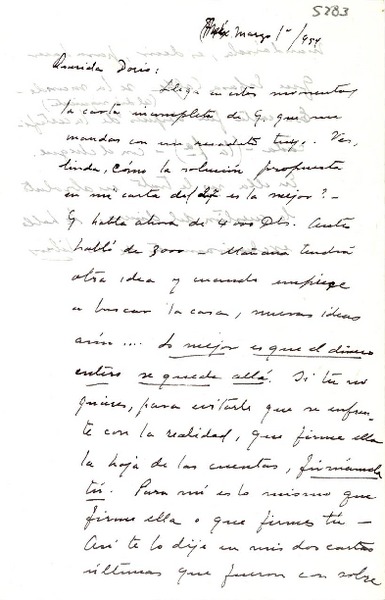 5283
Marzo 1º/954
Querida Doris:
Llega en estos momentos
la carta incompleta de G, que me
mandas con un recadito tuyo. Ves,
linda, cómo la solución propuesta
en mi carta del es la mejor? -
G habla ahora de 4000 Dls. Antes
habló de 3000 - Mañana tendrá
otra idea y cuando empiece
a buscar la casa, nuevas ideas
aún.... Lo mejor es que el dinero
entero se quede allá. Si tú no
quieres, para evitarle que se enfren-
te con la realidad, que firme ella
la hoja de las cuentas, fírmala
tú. Para mí es lo mismo que
firme ella o que firmes tú -
Así te lo dije en mis dos cartas
últimas que fueron con sobre